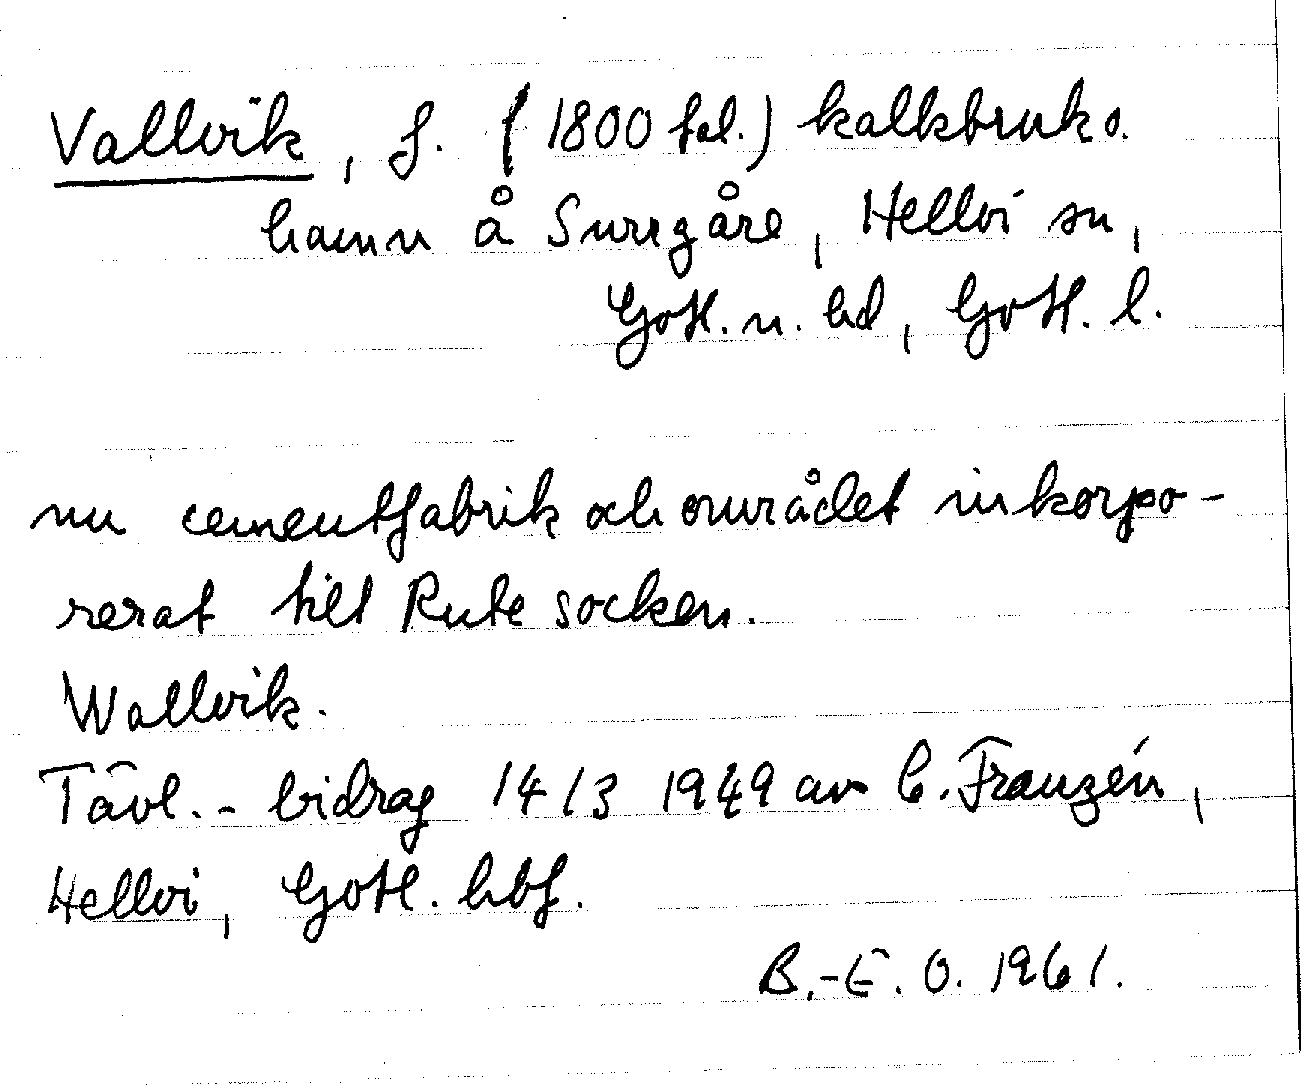 Vallvik, f. (1800 tal.) kalkbruk o.
hamn å Snurrgåre, Hellvi sn,
Gotl. n. hd, Gotl. l.
nu cementfabrik och området inkorpo-
rerat till Rute socken.
Wallvik.
Tävl.-bidrag 14/3 1949 av C. Franzén,
Hellvi, Gotl. hbf.
B.-E. O. 1961.